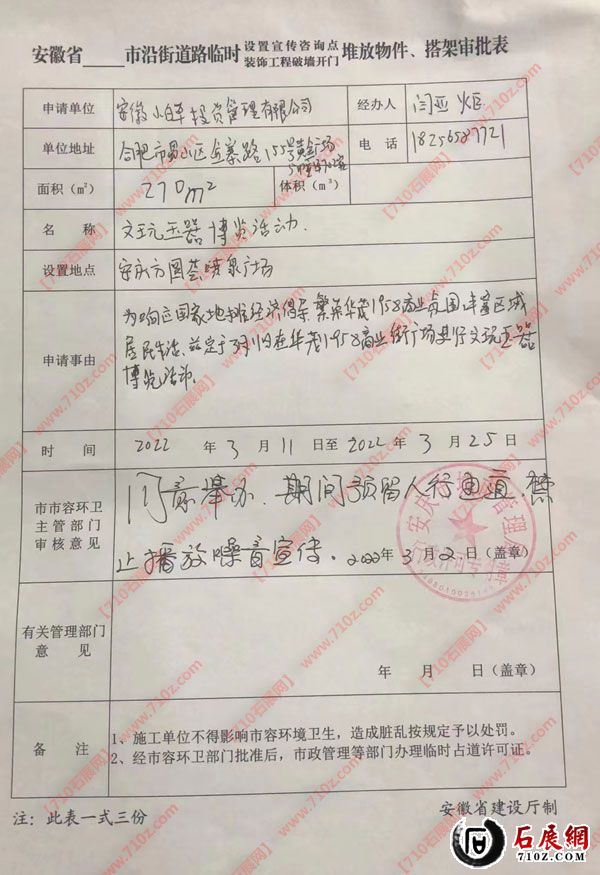 安徽省____市沿街道路临时 设置宣传咨询点 堆放物件、搭架审批表
装饰工程破墙开门
申请单位 安徽小白羊投资管理有限公司 经办人 闫亚炬
单位地址 合肥市蜀山区金寨路155号黄金广场 电话 18256587721
面积（m²） 270m² 体积（m³）
名称 文玩玉器博览活动.
设置地点 安庆方圆荟喷泉广场
申请事由 为响应国家地摊经济倡导繁荣华茂1958商业氛围丰富区域
居民生活.兹定于3月11日在华茂1958商业街广场进行文玩玉器
博览活动.
时间 2022 年 3 月 11 日至 2022 年 3 月 25 日
市市容环卫
主管部门
审核意见
同意举办.期间预留人行通道.禁
止播放噪音宣传.2022年3月2日（盖章）
有关管理部门
意见
年 月 日（盖章）
备注 1、施工单位不得影响市容环境卫生，造成脏乱按规定予以处罚。
2、经市容环卫部门批准后，市政管理等部门办理临时占道许可证。
注：此表一式三份 安徽省建设厅制
石展網
710Z.COM
【710石展网】www.710z.com